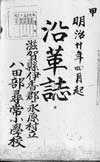 甲
明治廿年四月起
沿革誌
滋賀縣伊香郡永原村立
八田部尋常小學校